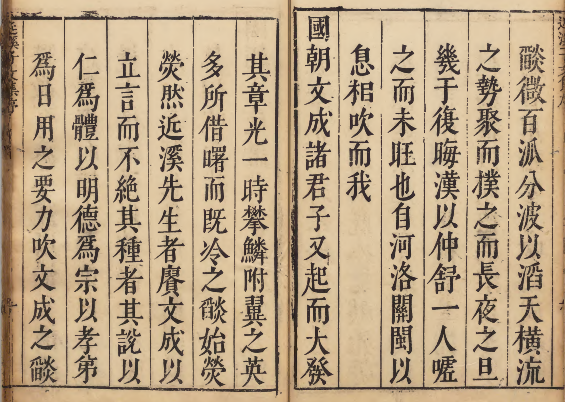 燄微百派分波以滔天橫流
之勢聚而撲之而長夜之旦
幾于復晦漢以仲舒一人噓
之而未旺也自河洛關閩以
息相吹而我
國朝文成諸君子又起而大發
其章光一時攀鱗附翼之英
多所借曙而既冷之燄始熒
熒然近溪先生者賡文成以
立言而不絶其種者其說以
仁爲體以明德爲宗以孝弟
爲日用之要力吹文成之燄